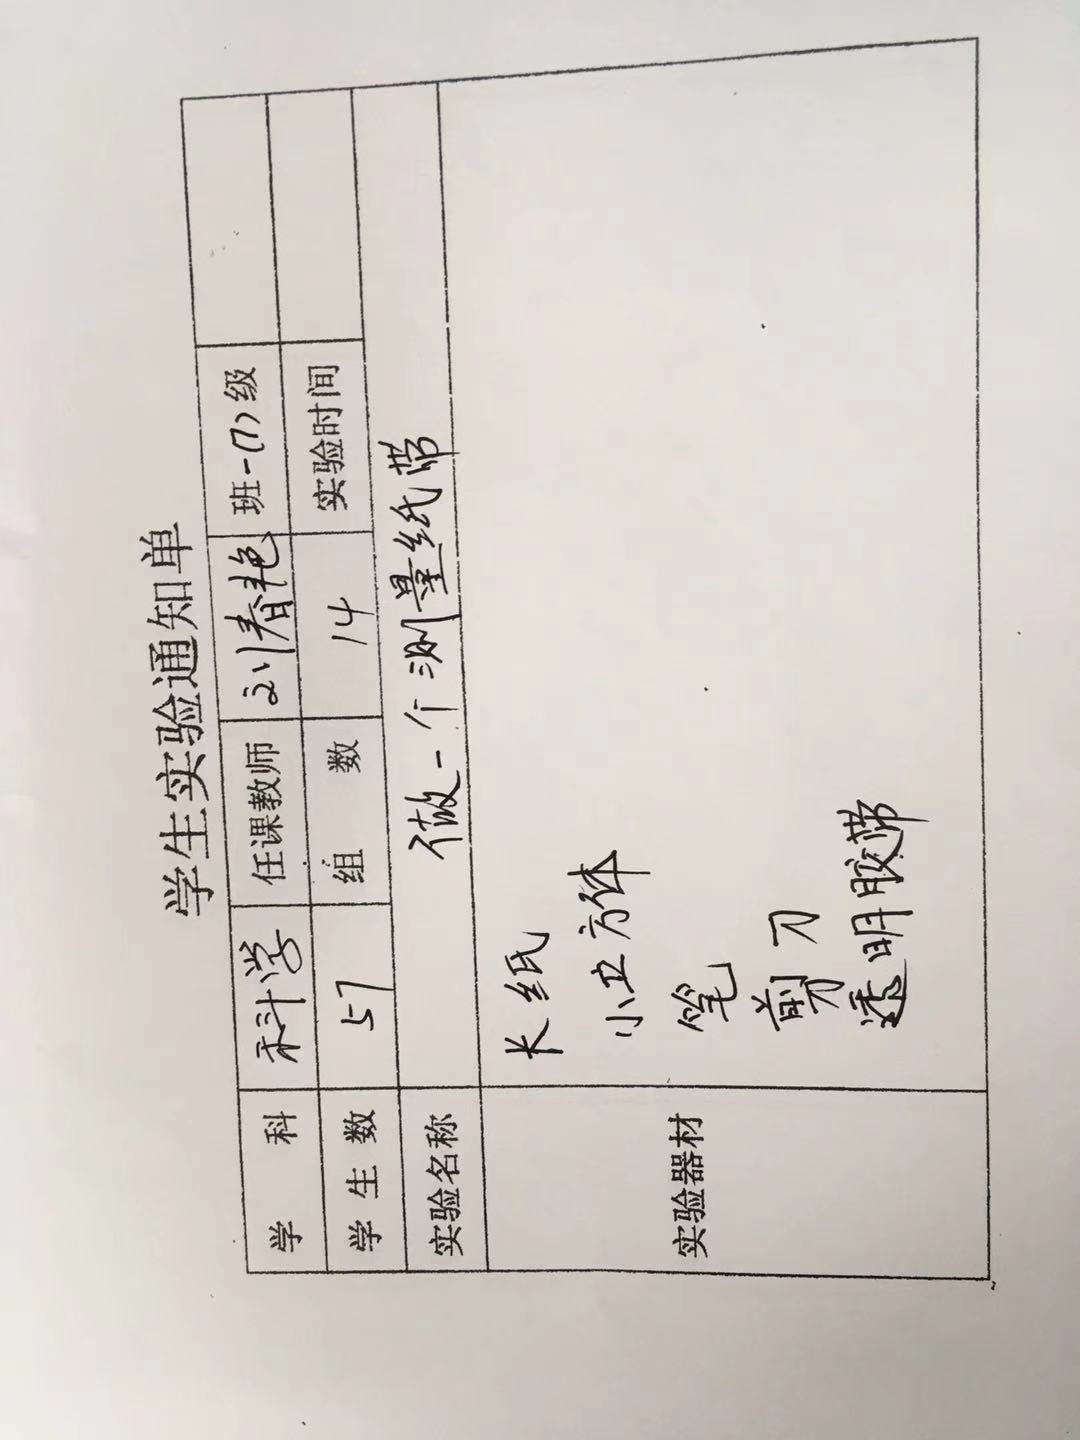 学生实验通知单
学 科 科学 任课教师 刘春艳 班一(7)级
学生数 57 组 数 14 实验时间
实验名称 做一个测量纸带
实验器材
长纸
小立方体
笔
剪刀
透明胶带